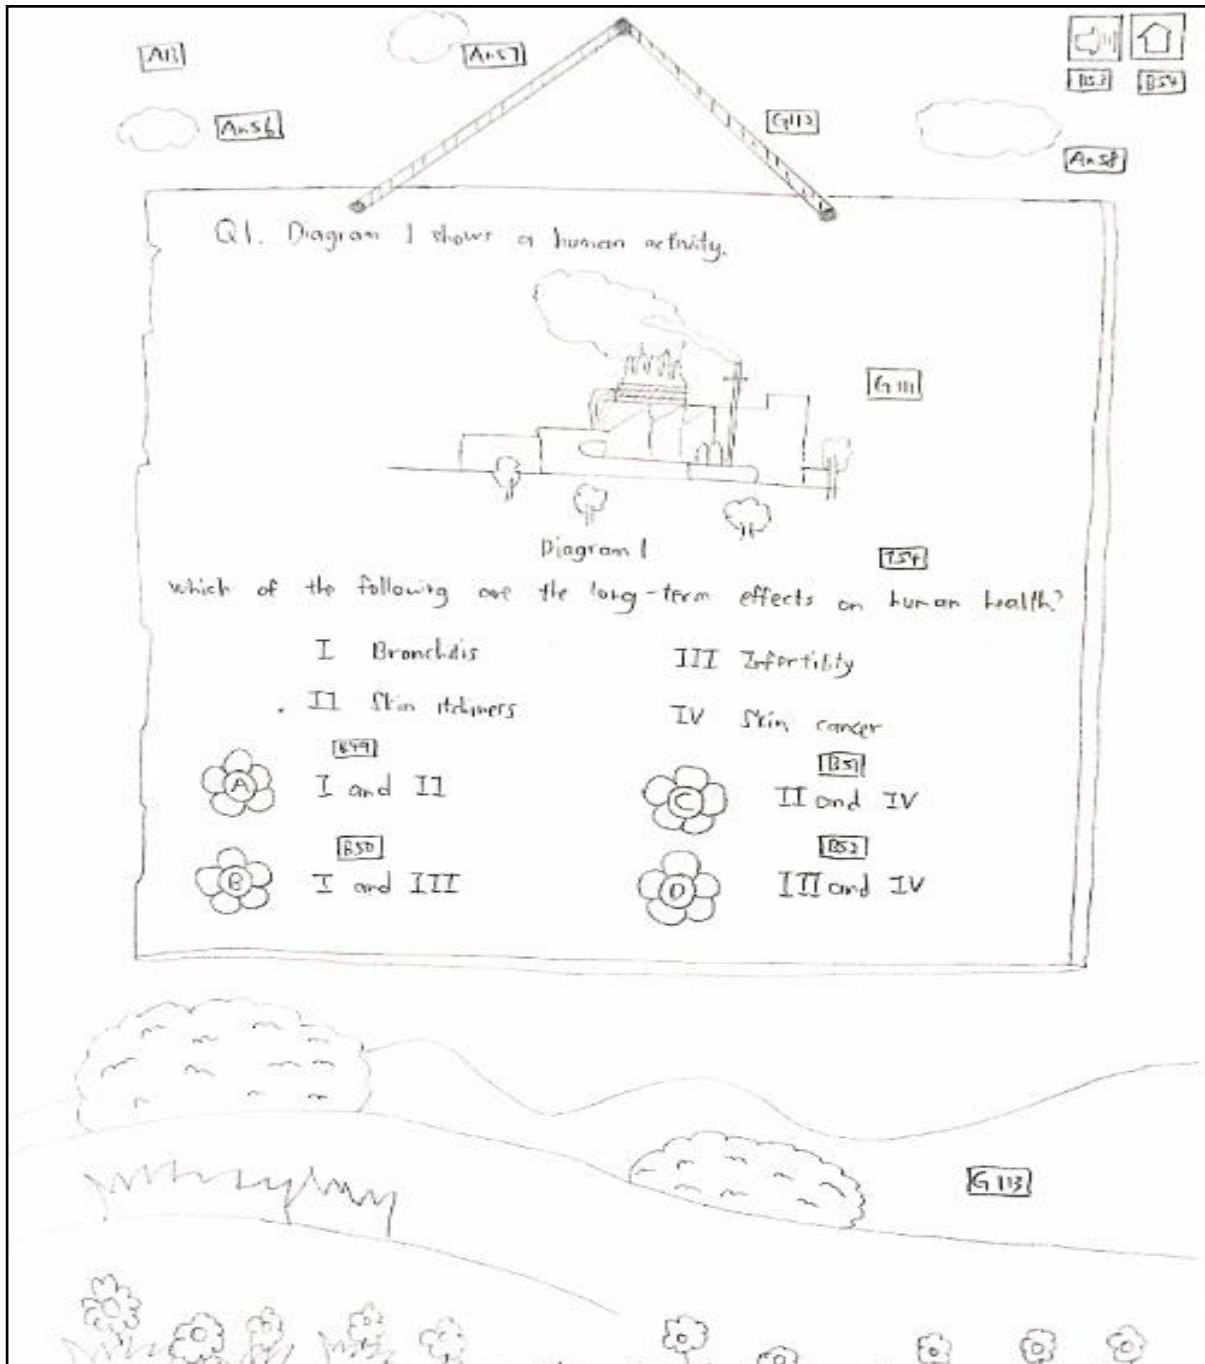 A13
An57
B53 B54
An56
G112
An58
Q1. Diagram 1 shows a human activity.
G111
Diagram 1
T54
which of the following are the long-term effects on human health?
I Bronchitis III Infertility
II Skin itchiness IV Skin cancer
B49 B51
A I and II C II and IV
B50 B52
B I and III D III and IV
G113